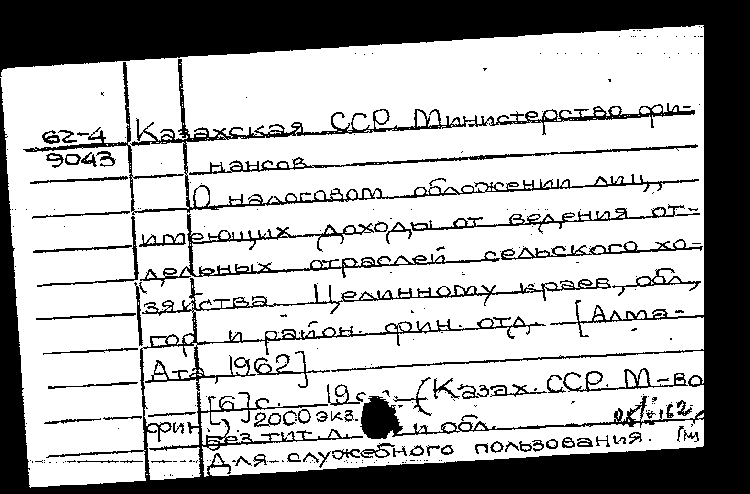 62-4 Казахская ССР. Министерство фи-
9043 нансов
О налоговом обложении лиц,
имеющих доходы от ведения от-
дельных отраслей сельского хо-
зяйства. Целинному краев., обл.,
гор. и район. фин. отд. [Алма-
Ата, 1962]
[6] с. 19 см. (Казах. ССР. М-во
фин.) 2000 экз.
Без тит. л. и обл.
Для служебного пользования.